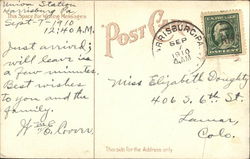 Union Station
Harrisburg Pa
This Space for Writing Messages
Sept-7-1910
12:40 A.M.
Just arrived;
will leave in
a few minutes.
Best wishes
to you and the
family.
Post Card
HARRISBURG, PA.
SEP
1910
Miss Elizabeth Doughty
406 S. 6th St.
Lamar,
Colo.
This side for the Address only